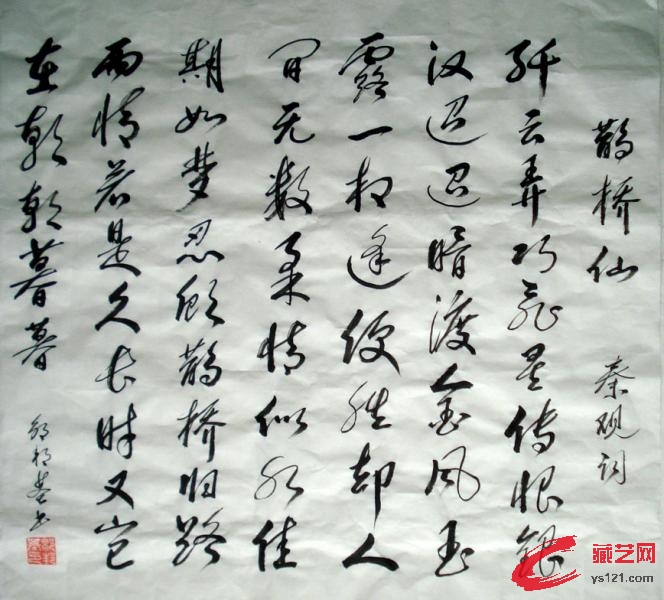 鹊桥仙 秦观词
纤云弄巧飞星传恨银
汉迢迢暗渡金风玉
露一相逢便胜却人
间无数柔情似水佳
期如梦忍顾鹊桥归路
两情若是久长时又岂
在朝朝暮暮
书
藏艺网
ys121.com